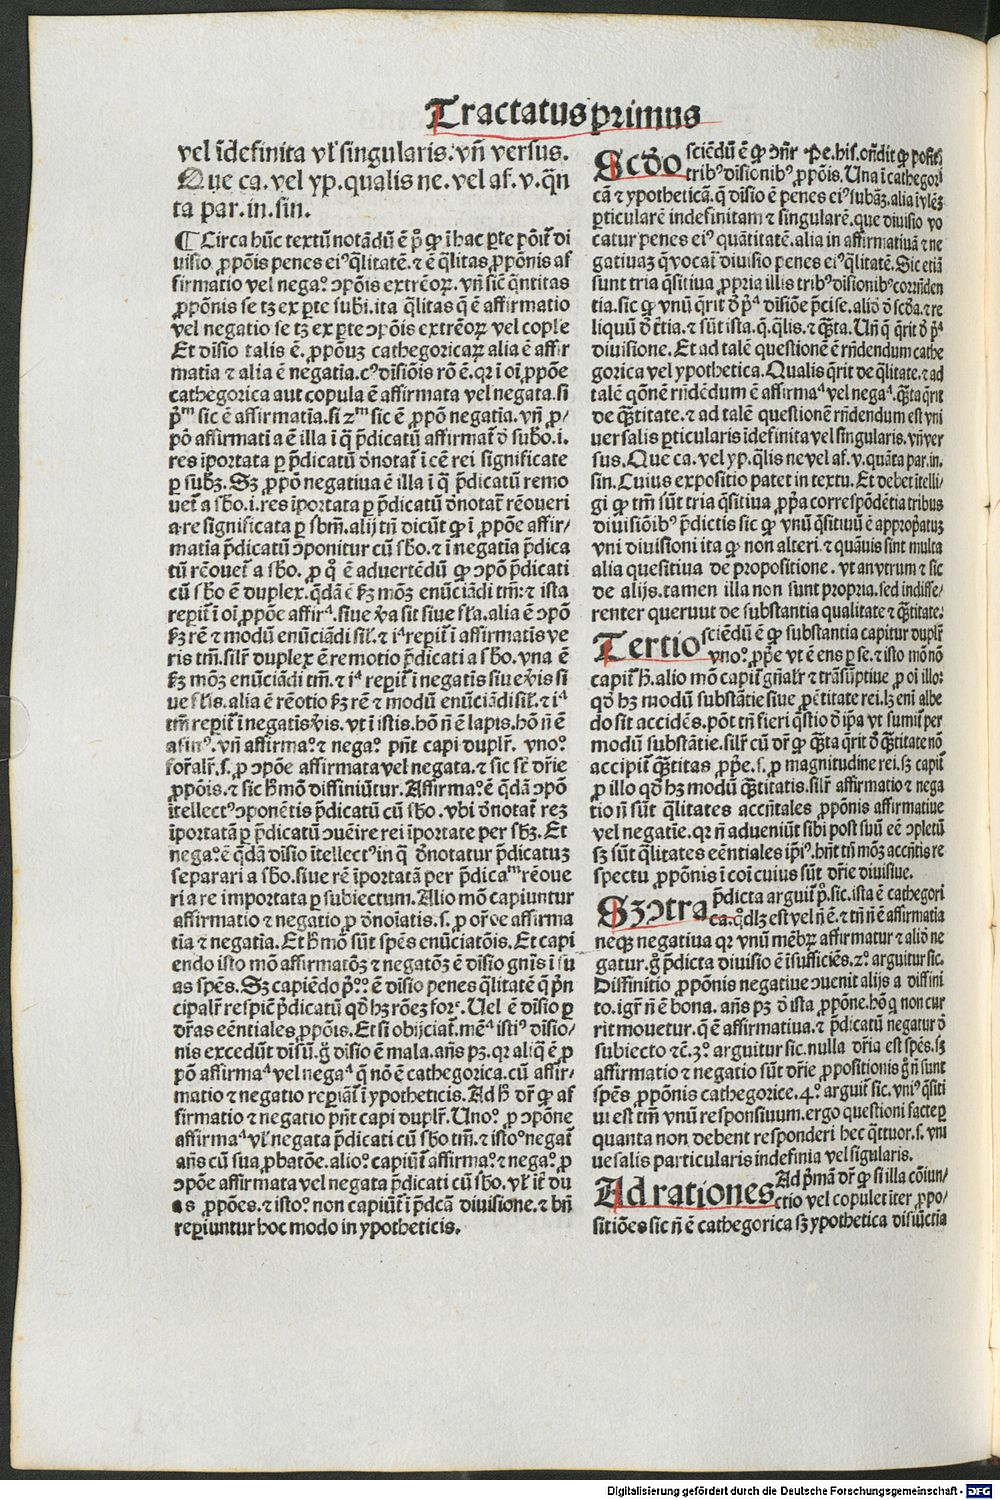 Tractatus primus
vel īdefinita vl̄ singularis. vñ versus.
Que ca. vel yp. qualis ne. vel af. v. q̄n
ta par. in. sin.
¶ Circa hūc textū notādū ē p̄º ꝙ ī hac ꝑte pōit̄ di
uisio ꝓpōis penes eiꝰ q̄litatē. ⁊ ē q̄litas ꝓpōnis af
firmatio vel negaº. ↄpōis extrēoꝝ. vñ sicē q̄ntitas
ꝓpōnis se tꝫ ex ꝑte subi. ita q̄litas q̄ ē affirmatio
vel negatio se tꝫ ex ꝑte ↄpōis extrēoꝝ vel cople
Et dīsio talis ē. ꝓpōnuꝫ cathegoricaꝝ alia ē affir
matīa ⁊ alia ē negatīa. cꝰ dīsiōis rō ē. qꝛ ī oī ꝓpōe
cathegorica aut copula ē affirmata vel negata. si
p̄ᵐ sic ē affirmatīa. si 2ᵐ sic ē ꝓpō negatīa. vñ ꝓ/
pō affirmatīa ē illa ī q̄ p̄dicatū affirmat̄ đ subo. i.
res īportata ꝑ p̄dicatū đnotat̄ īēe rei significate
ꝑ subꝫ. Sꝫ ꝓpō negatiua ē illa ī q̄ p̄dicatū remo
uet̄ a sb̄o. i. res īportata ꝑ p̄dicatū đnotat̄ rēoueri
a re significata ꝑ sbm̄. alij tn̄ dicūt ꝙ ī ꝓpōe affir/
matīa p̄dicatū ↄponitur cū sb̄o. ⁊ ī negatīa p̄dica
tū rēouet̄ a sb̄o. ꝓ qº ē aduertēdū ꝙ ↄpō p̄dicati
cū sb̄o ē duplex. q̄dā ē ẜꝫ mōꝫ enūciādi tm̄. ⁊ ista
reꝑit̄ ī oī ꝓpōe affirᵃ. siue v̄a sit siue fl̄a. alia ē ↄpō
ẜꝫ rē ⁊ modū enūciādi sil̄. ⁊ iᵃ reꝑit̄ ī affirmatis ve
ris tm̄. silr̄ duplex ē remotio p̄dicati a sb̄o. vna ē
ẜꝫ mōꝫ enūciādi tm̄. ⁊ iᵃ reꝑit̄ ī negatis siue v̄is si
ue fl̄is. alia ē rēotio ẜꝫ rē ⁊ modū enūciādi sil̄. ⁊ iᵃ
tm̄ reꝑit̄ ī negatis v̄is. vt ī istis. hō ñ ē lapis. hō ñ ē
asinꝰ. vñ affirmaº. ⁊ negaº. pn̄t capi duplr̄. vnoº.
for̄alr̄. s. ꝓ ↄpōe affirmata vel negata. ⁊ sic st̄ dr̄ie
ꝓpōis. ⁊ sic h̄ mō diffiniūtur. Affirmaº. ē q̄dā ↄpō
ītellectꝰ ↄponētis p̄dicatū cū sb̄o. vbi đnotat̄ rez
īportatā ꝑ p̄dicatū ↄuēire rei īportate per sb̄ꝫ. Et
negaº. ē q̄dā dīsio ītellectꝰ in q̄ đnotatur p̄dicatuꝫ
separari a sb̄o. siue rē īportatā per p̄dicaᵐ rēoue
ri a re importata ꝑ subiectum. Alio mō capiuntur
affirmatio ⁊ negatio ꝓ đnoīatis. s. ꝓ or̄oe affirma
tīa ⁊ negatīa. Et h̄ mō sūt spēs enūciatōis. Et capi
endo isto mō affirmatōꝫ ⁊ negatōꝫ ē dīsio gn̄is ī su
as spēs. Sꝫ capiēdo p̄ºº. ē dīsio penes q̄litatē q̄ p̄n
cipalr̄ respic̄ p̄dicatū qđ hꝫ rōeꝫ forᵉ. Uel ē dīsio ꝑ
dr̄as eēntiales ꝓpōis. Et si obijciat̄. mēᵃ istiꝰ dīsio/
nis excedūt dīsū. ḡ dīsio ē mala. añs pꝫ. qꝛ aliq̄ ē ꝓ
pō affirmaᵃ vel negaᵃ q̄ nō ē cathegorica. cū affir/
matio ⁊ negatio reperiāt̄ ī ypotheticis. Ad h̄ dr̄ ꝙ af
firmatio ⁊ negatio pn̄t capi duplr̄. Unoº. ꝓ ↄpōne
affirmaᵃ vl̄ negata p̄dicati cū sb̄o tm̄. ⁊ istoº negat̄
añs cū sua ꝓbatōe. alioº. capiūt̄ affirmaº. ⁊ negaº. ꝓ
ↄpōe affirmata vel negata p̄dicati cū sb̄o. vl̄ īt̄ du
as ꝓpōes. ⁊ istoº. non capiūt̄ ī p̄dcā diuisione. ⁊ bn̄
reꝑiuntur hoc modo in ypotheticis.
Scđo sciēdū ē ꝙ ↄn̄r Pe. his. on̄dit ꝙ positis
tribꝰ dīsionibꝰ ꝓpōis. Una ī cathegori
cā ⁊ ypotheticā. q̄ dīsio ē penes eiꝰ subāꝫ. alia ī vl̄eꝫ
ꝑticularē indefinitam ⁊ singularē. que diuisio vo
catur penes eiꝰ quātitatē. alia in affirmatiuā ⁊ ne
gatiuaꝫ q̄ vocat̄ diuisio penes eiꝰ q̄litatē. Sic etiā
sunt tria q̄sitiua ꝓpria illis tribꝰ dīsionibꝰ corrn̄den
tia. sic ꝙ vnū q̄rit đ p̄ᵃ dīsiōe p̄cise. aliō đ scđa. ⁊ re
liquū đ t̄tia. ⁊ sūt ista. q̄. q̄lis. ⁊ q̄ta. Uñ q̄ q̄rit đ p̄ᵃ
diuisione. Et ad talē questionē ē rn̄dendum cathe
gorica vel ypothetica. Qualis q̄rit de q̄litate. ⁊ ad
talē q̄onē rn̄dēdum ē affirmaᵃ vel negaᵃ. q̄ta q̄rit
de q̄titate. ⁊ ad talē questionē rn̄dendum est vni
uersalis ꝑticularis īdefinita vel singularis. vñ ver
sus. Que ca. vel yp. q̄lis ne vel af. v. quāta par. in.
sin. Cuius expositio patet in textu. Et debet ītelli/
gi ꝙ tm̄ sūt tria q̄sitiua ꝓp̄a correspōdētia tribus
diuisiōibꝰ p̄dictis sic ꝙ vnū q̄sitiuū ē appropatuꝫ
vni diuisioni ita ꝙ non alteri. ⁊ quāuis sint multa
alia quesitiua de propositione. vt an vtrum ⁊ sic
de alijs. tamen illa non sunt propria. sed indiffe/
renter querunt de substantia qualitate ⁊ q̄titate.
Tertio sciēdū ē ꝙ substantia capitur duplr̄
vnoº. ꝓpe vt ē ens ꝑ se. ⁊ isto mō nō
capit̄ h̄. alio mō capit̄ gn̄alr̄ ⁊ trāsūptiue ꝓ oī illo
qđ hꝫ modū substātie siue ꝓ ētitate rei. lꝫ enī albe
do sit accidēs. pōt tn̄ fieri q̄stio đ ip̄a vt sumit̄ per
modū substātie. silr̄ cū dr̄ ꝙ q̄ta q̄rit đ q̄titate nō
accipit̄ q̄titas ꝓp̄e. s. ꝓ magnitudine rei. sꝫ capit̄
ꝓ illo qđ hꝫ modū q̄titatis. silr̄ affirmatio ⁊ nega
tio ñ sūt q̄litates accn̄tales ꝓpōnis affirmatiue
vel negatīe. qꝛ ñ adueniūt sibi post suū eē ↄpletū
sꝫ sūt q̄litates eēntiales ip̄iꝰ. hn̄t tn̄ mōꝫ accn̄tis re
spectu ꝓpōnis ī cōi cuius sūt dr̄ie diuisiue.
Sꝫ ↄtra p̄dicta arguit̄ pº. sic. ista ē cathegori
ca. qđlꝫ est vel ñ ē. ⁊ tn̄ ñ ē affirmatīa
neqꝫ negatiua qꝛ vnū mēbꝝ affirmatur ⁊ aliō ne
gatur. ḡ p̄dicta diuisio ē īsufficiēs. 2º. arguitur sic.
Diffinitio ꝓpōnis negatiue ↄuenit alijs a diffini
to. igr̄ ñ ē bona. añs pꝫ đ ista ꝓpōne. hō q̄ non cur
rit mouetur. q̄ ē affirmatiua. ⁊ p̄dicatū negatur đ
subiecto ⁊c̄. 3º. arguitur sic. nulla dr̄ia est spēs. sꝫ
affirmatio ⁊ negatio sūt dr̄ie ꝓpositionis ḡ ñ sunt
spēs ꝓpōnis cathegorice. 4º. arguit̄ sic. vniꝰ q̄siti
ui est tm̄ vnū responsiuum. ergo questioni facte ꝑ
quanta non debent responderi hec q̄ttuor. s. vni
uesalis particularis indefinia vel singularis.
Ad rationes Ad p̄mā dr̄ ꝙ si illa cōiun/
ctio vel copulet iter ꝓpo/
sitiōes sic ñ ē cathegorica sꝫ ypothetica disiūctīa
Digitalisierung gefördert durch die Deutsche Forschungsgemeinschaft - DFG